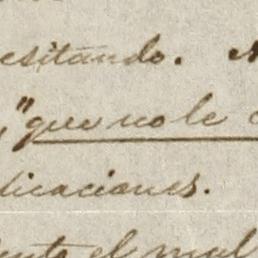 esitando.
"que no le
dicaciones.
ente el mal